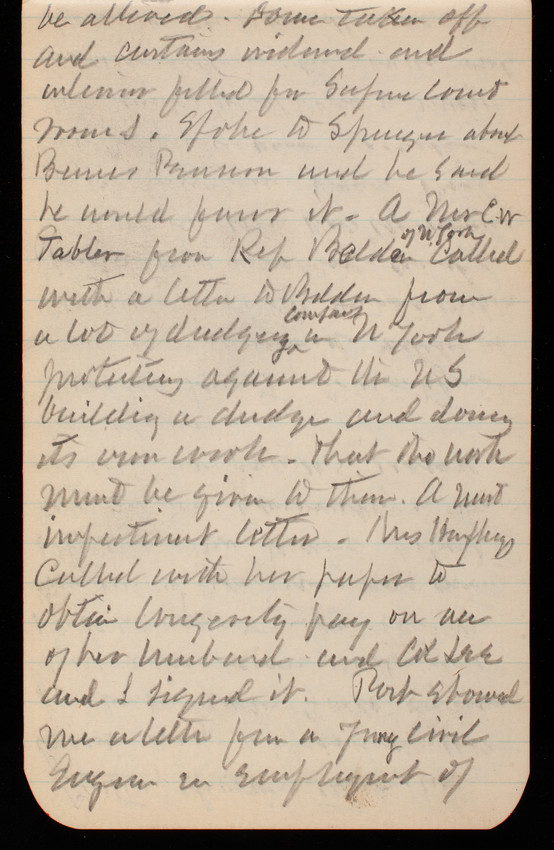 be allowed. Some taken off
and curtains widened and
interior fitted for Supreme Court
rooms. Spoke to Sprague about
Pension and he said
he would favor it. A Mr C W
Tabler from Rep Belden of N York called
with a letter to Belden from
a lot of dredging company in N York
protesting against the US
building a dredge and doing
its own work. That the work
must be given to them. A most
impertinent letter. Mrs Humphreys
Called with her paper to
obtain longevity pay on
of her husband and Col
and I signed it. Post showed
me a letter from a young civil
in employment of